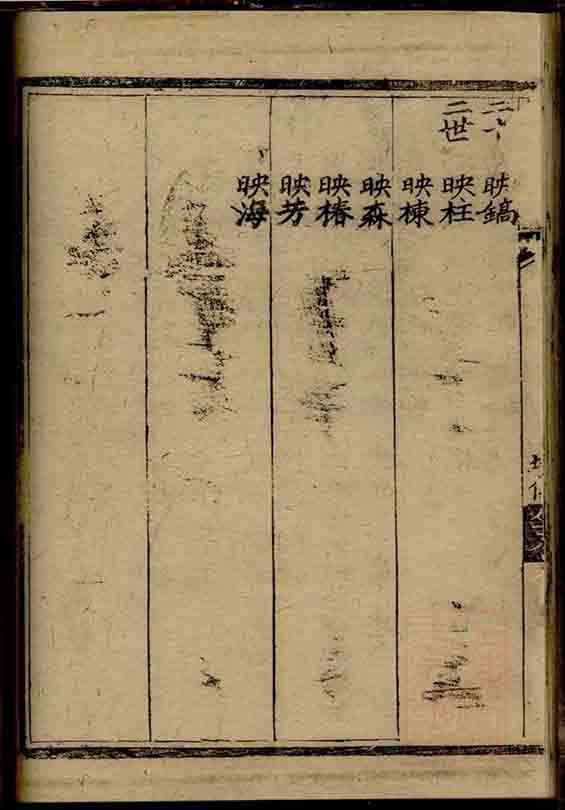 二十
二世
映鎬
映柱
映棟
映森
映椿
映芳
映海